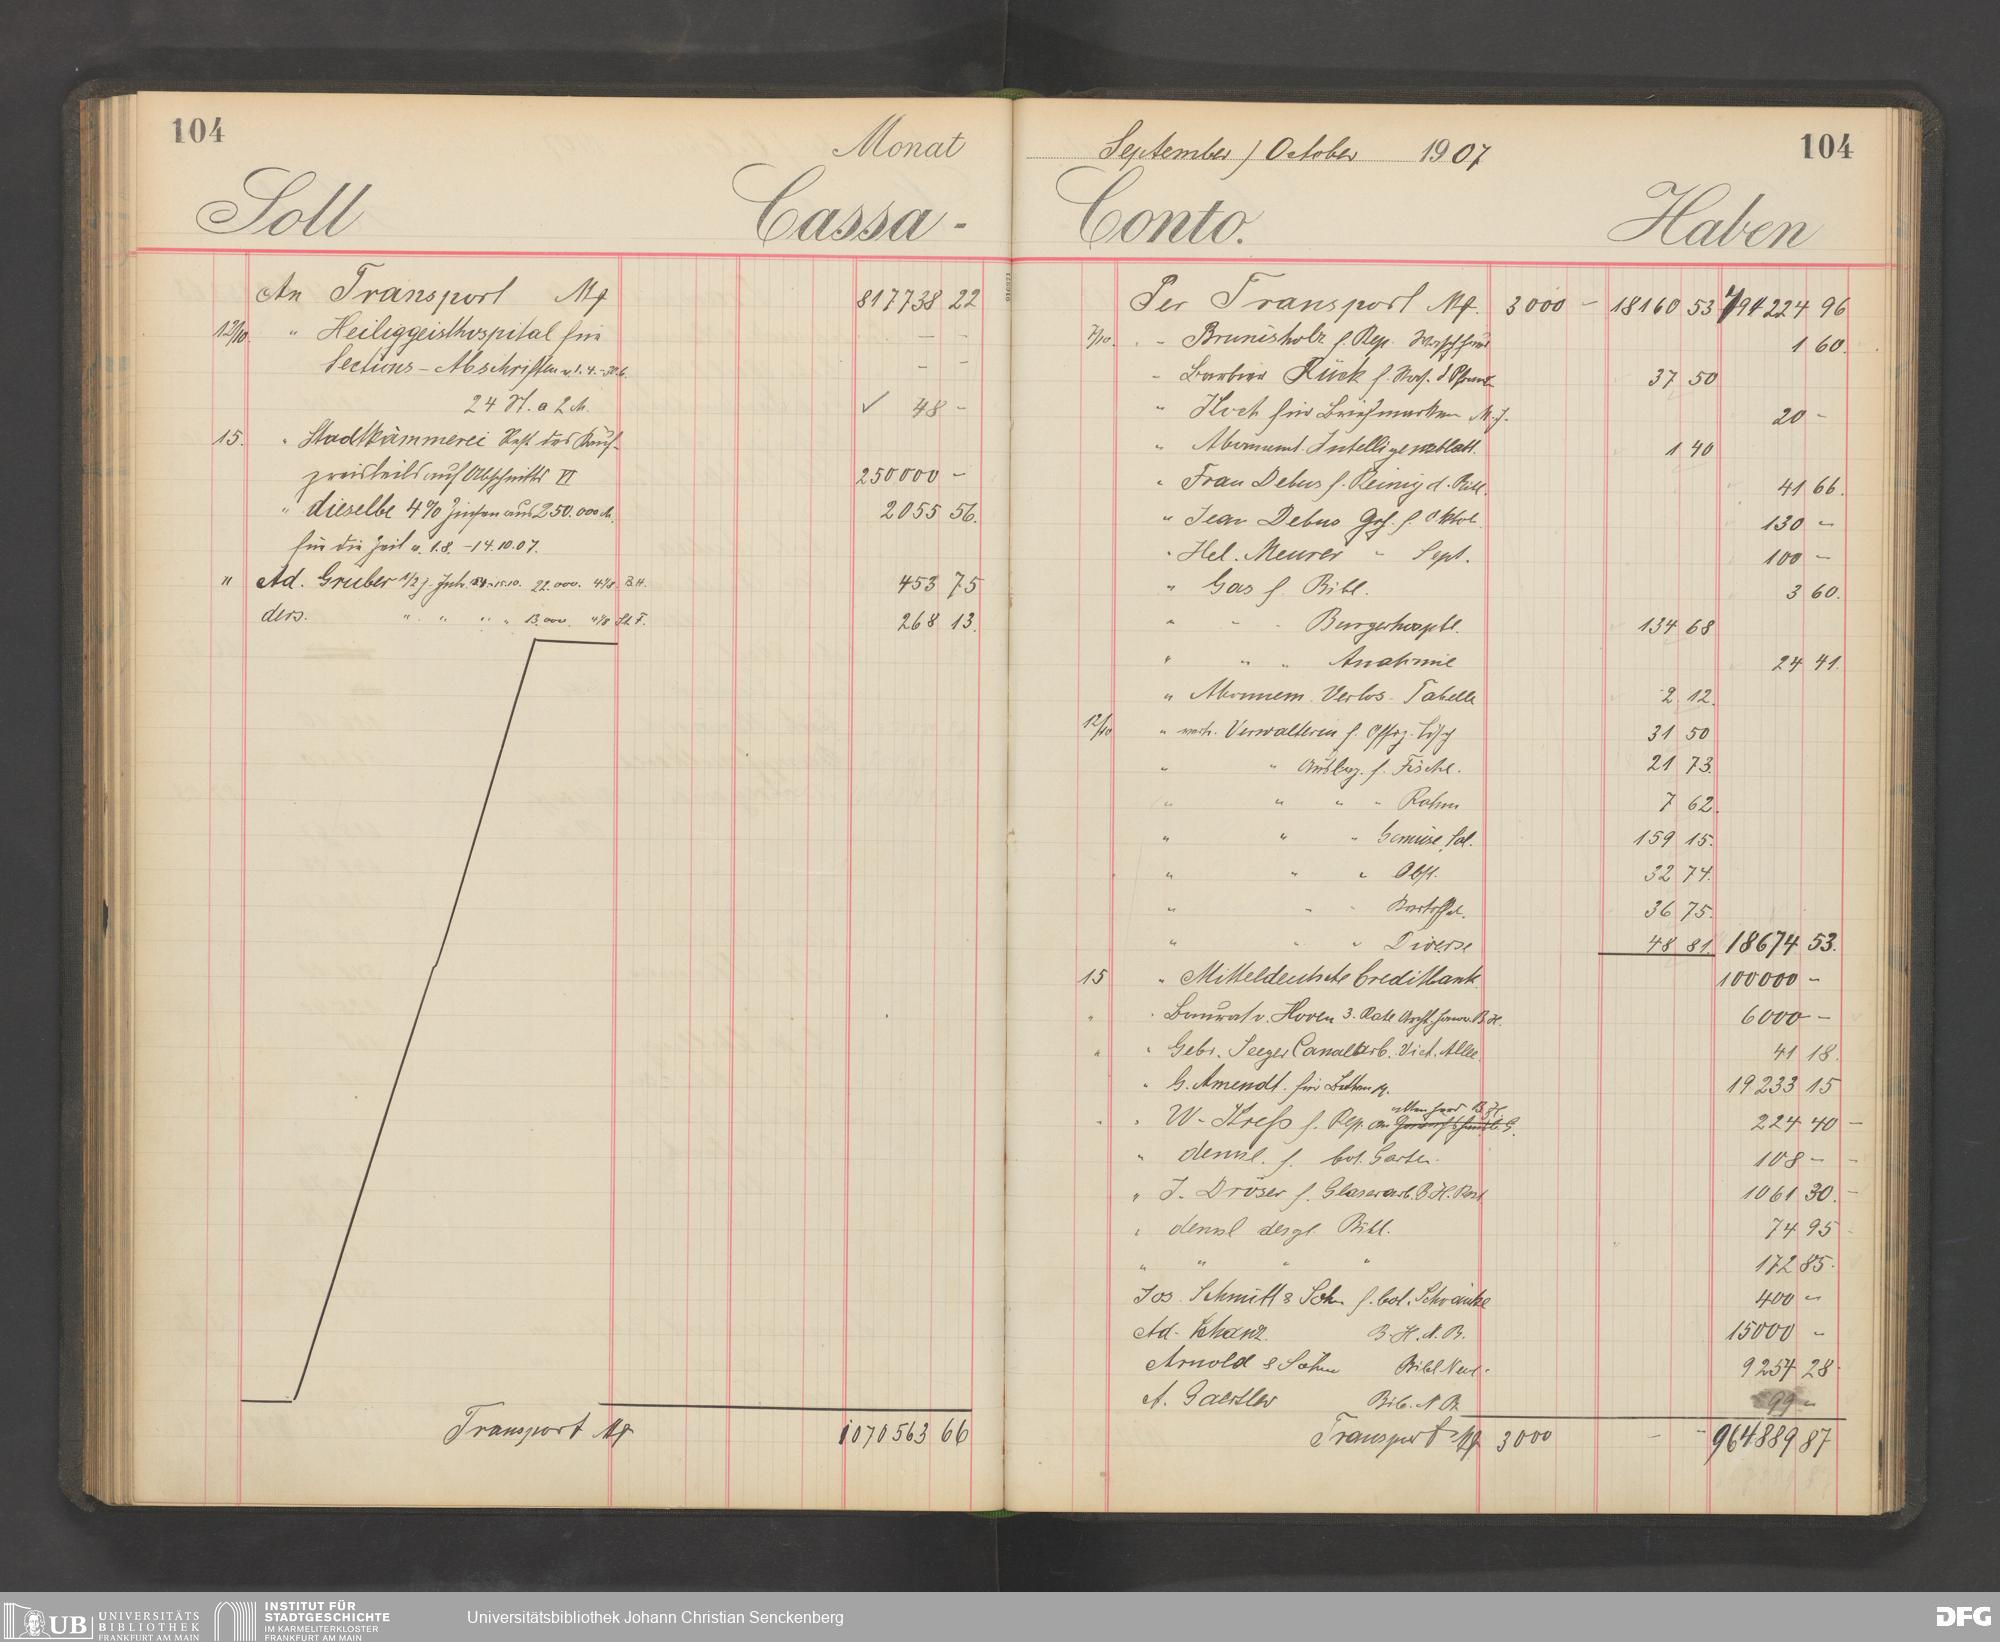 104
Monat
Soll
Cassa -
An Transport M
817738 22
12/10 " Heiliggeisthospital für
Sections - Abschriften v. 1.4.-30.6.
24 St. a 2 M. ✓ 48 -
15. " Stadtkämmerei Rest des Kauf-
preisteils auf Abschnitts VI 250000 -
" dieselbe 4% Zinsen aus 250.000 M. 2055 56.
für die Zeit v. 1.8. - 14.10.07.
" Ad. Gruber 1/2 j. 15.10. 22.000. 4% B.H. 453 75
ders. " " " " 13.000. 4% St. F. 268 13.
Transport M 1070563 66
September / October 1907
104
Conto.
Haben
Per Transport M. 3000 - 18160 53 794224 96
7/10. " Brunisholz f. Rep. 1 60.
" Barbier Rück f. 37 50
" Koch für Briefmarken M. J. 20 -
" Abonnemt. Intelligenzblatt. 1 40
" Frau Debus f. Reinig d. Bibl. 41 66.
" Jean Debus f. Oktob. 130 -
" Hel. Meurer " Sept. 100 -
" Gas f. Bibl. 3 60.
" " " Burgerhosptl. 134 68
" " " Anatomie 24 41.
" Abonnem. Verlos. Tabelle 2 12.
12/10 " Verwalterin f. 31 50
" " Auslag. f. Fische. 21 73.
" " " " Rahm 7 62.
" " " Gemüse, Sal. 159 15.
" " " Obst. 32 74.
" " " Kartoffel. 36 75.
" " " Diverse 48 81. 18674 53.
15 " Mitteldeutsche Creditbank 100000 -
" " Baurat v. Hoven 3. Rate B. H. 6000 -
" " Gebr. Seeger Canalarb. Vict. Allee 41 18.
" G. Amendt. für 19233 15
" " W. Kress f. Rep. am B. H. 224 40 -
" demsl. f. bot. Garten. 108 - -
" J. Dröser f. Glaserarb. B. H. 1061 30. -
" demsl desgl. Bibl. 74 95
" " " " 172 85.
Jos. Schmitt & Sohn f. bot. Schränke 400 -
Ad. Schanz. B. H. N. B. 15000 -
Arnold & Söhne Bibl Neub. 9254 28.
A. Gaertler Bib. N B. 99 -
Transport M 3000 - - 964889 87
UB UNIVERSITÄTS
BIBLIOTHEK
FRANKFURT AM MAIN
INSTITUT FÜR
STADTGESCHICHTE
IM KARMELITERKLOSTER
FRANKFURT AM MAIN
Universitätsbibliothek Johann Christian Senckenberg
DFG